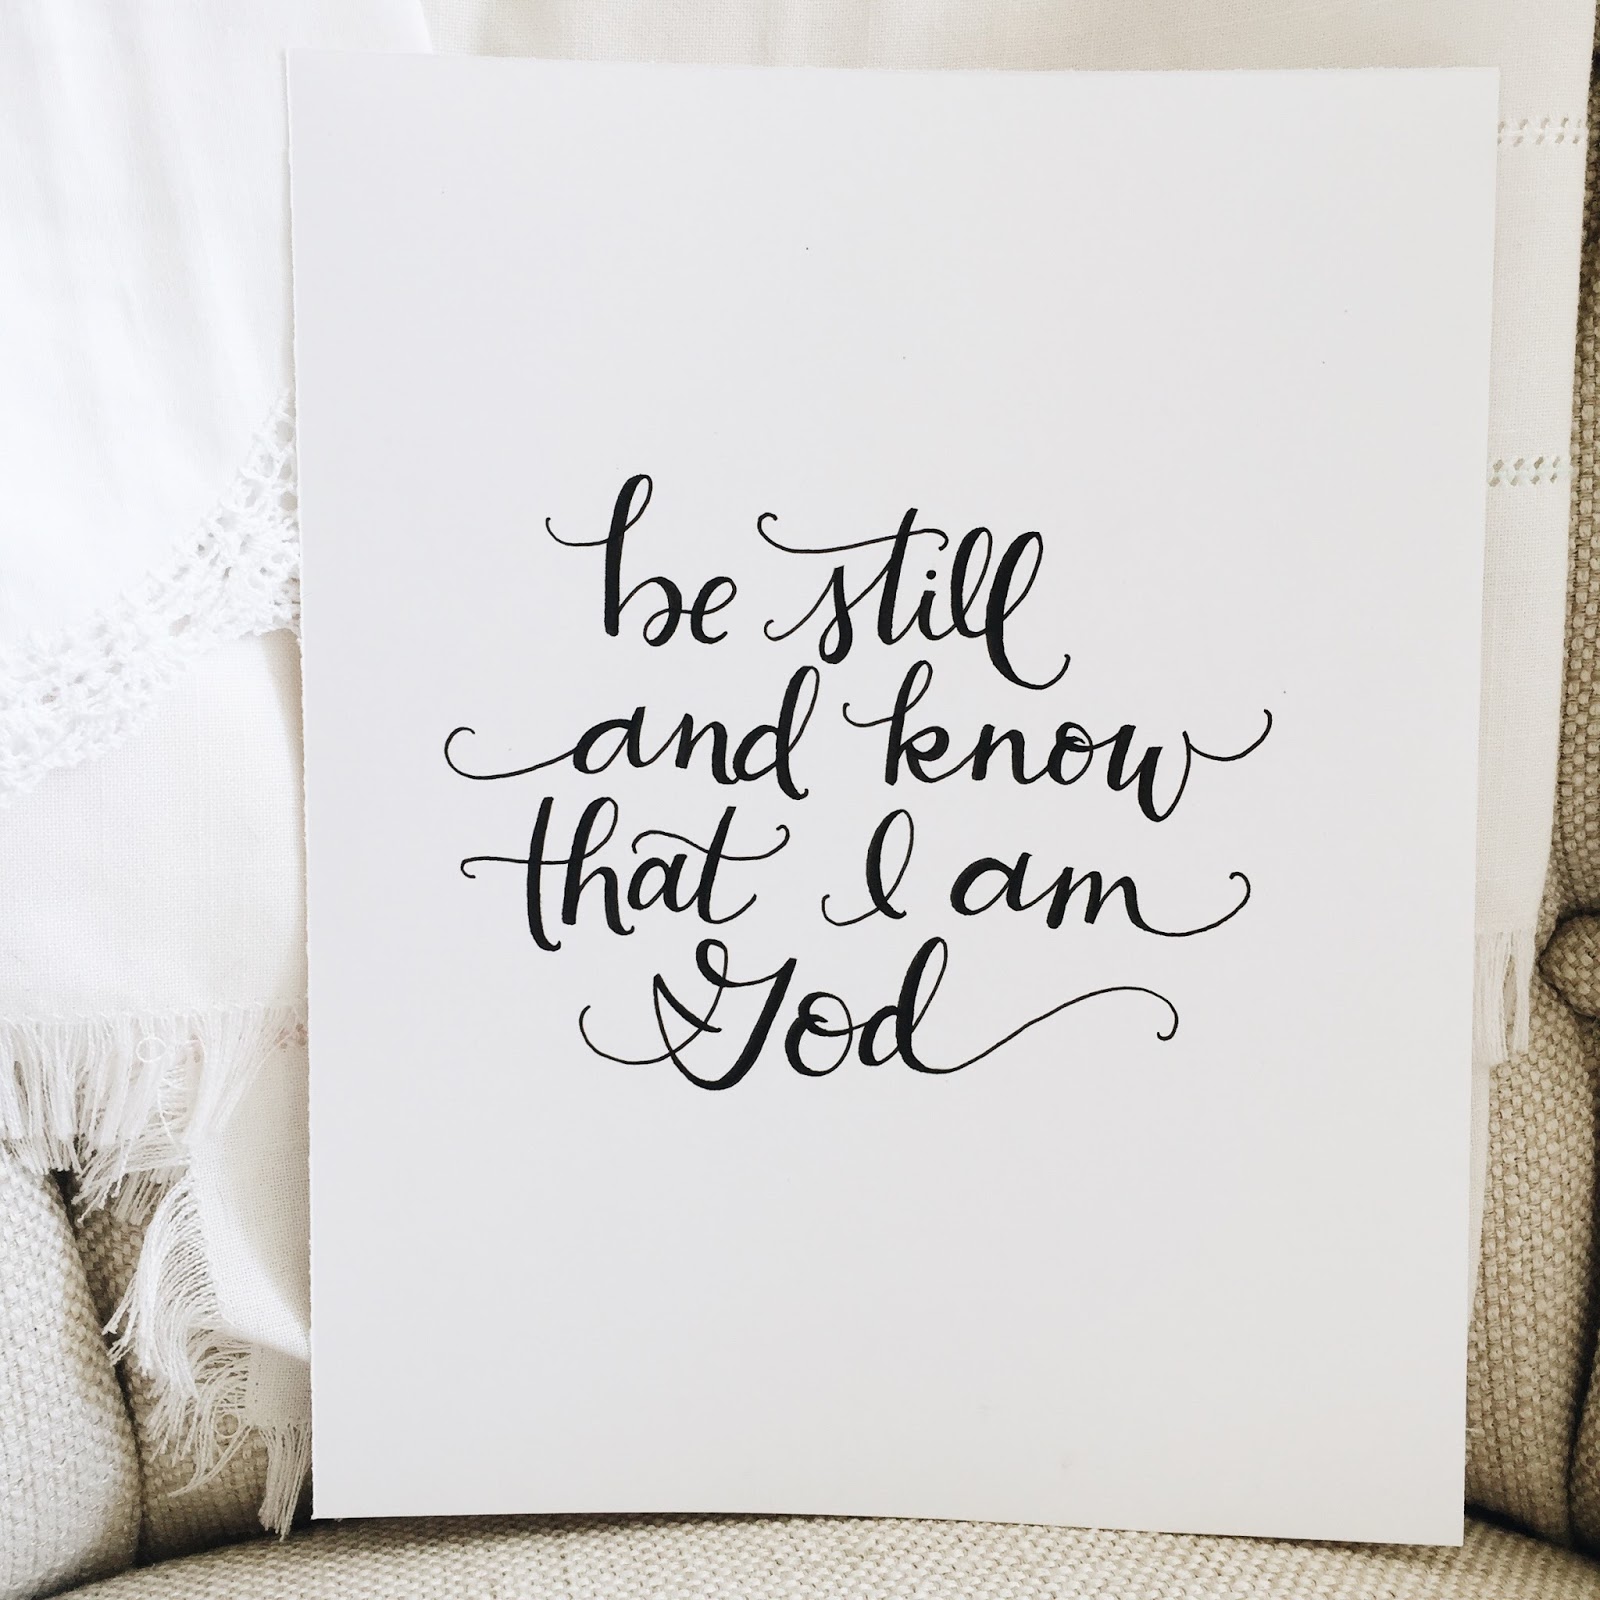 be still
and know
that I am
God